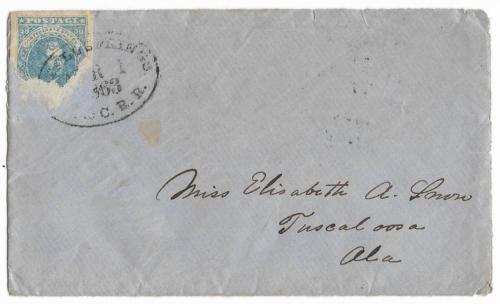 POSTAGE
R 1
C. R. R.
Miss Elisabeth A. Snow
Tuscaloosa
Ala